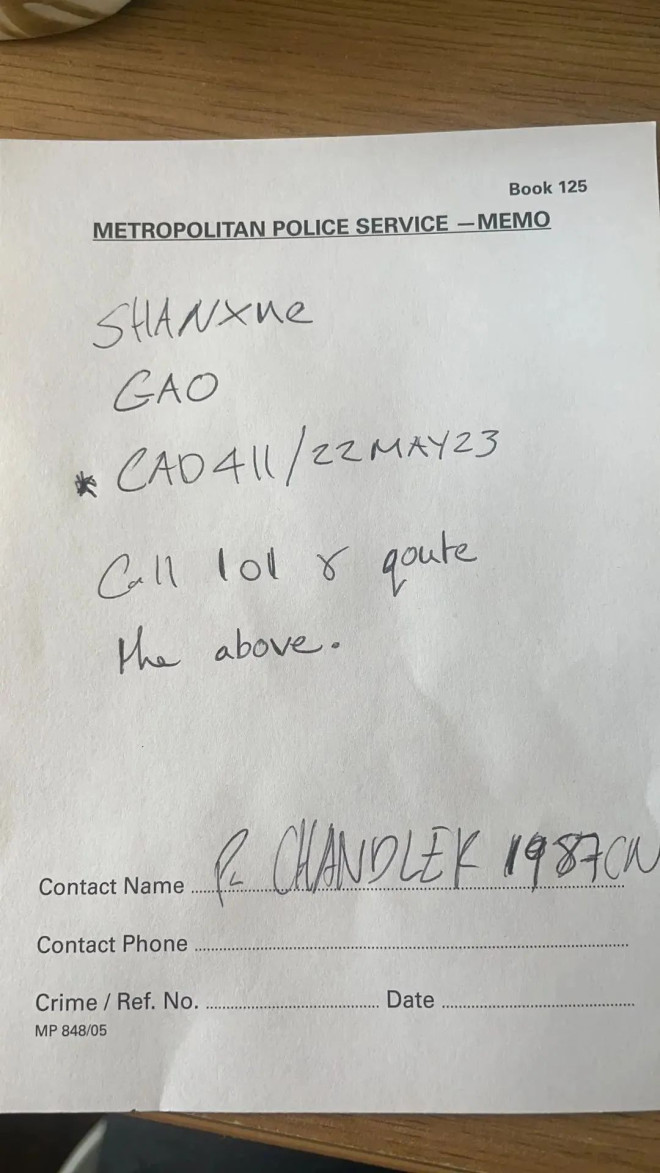 Book 125
METROPOLITAN POLICE SERVICE —MEMO
SHANXUE
GAO
* CAD411/22MAY23
Call 101 & qoute
the above.
Contact Name PC CHANDLER 1987CN
Contact Phone
Crime / Ref. No. Date
MP 848/05